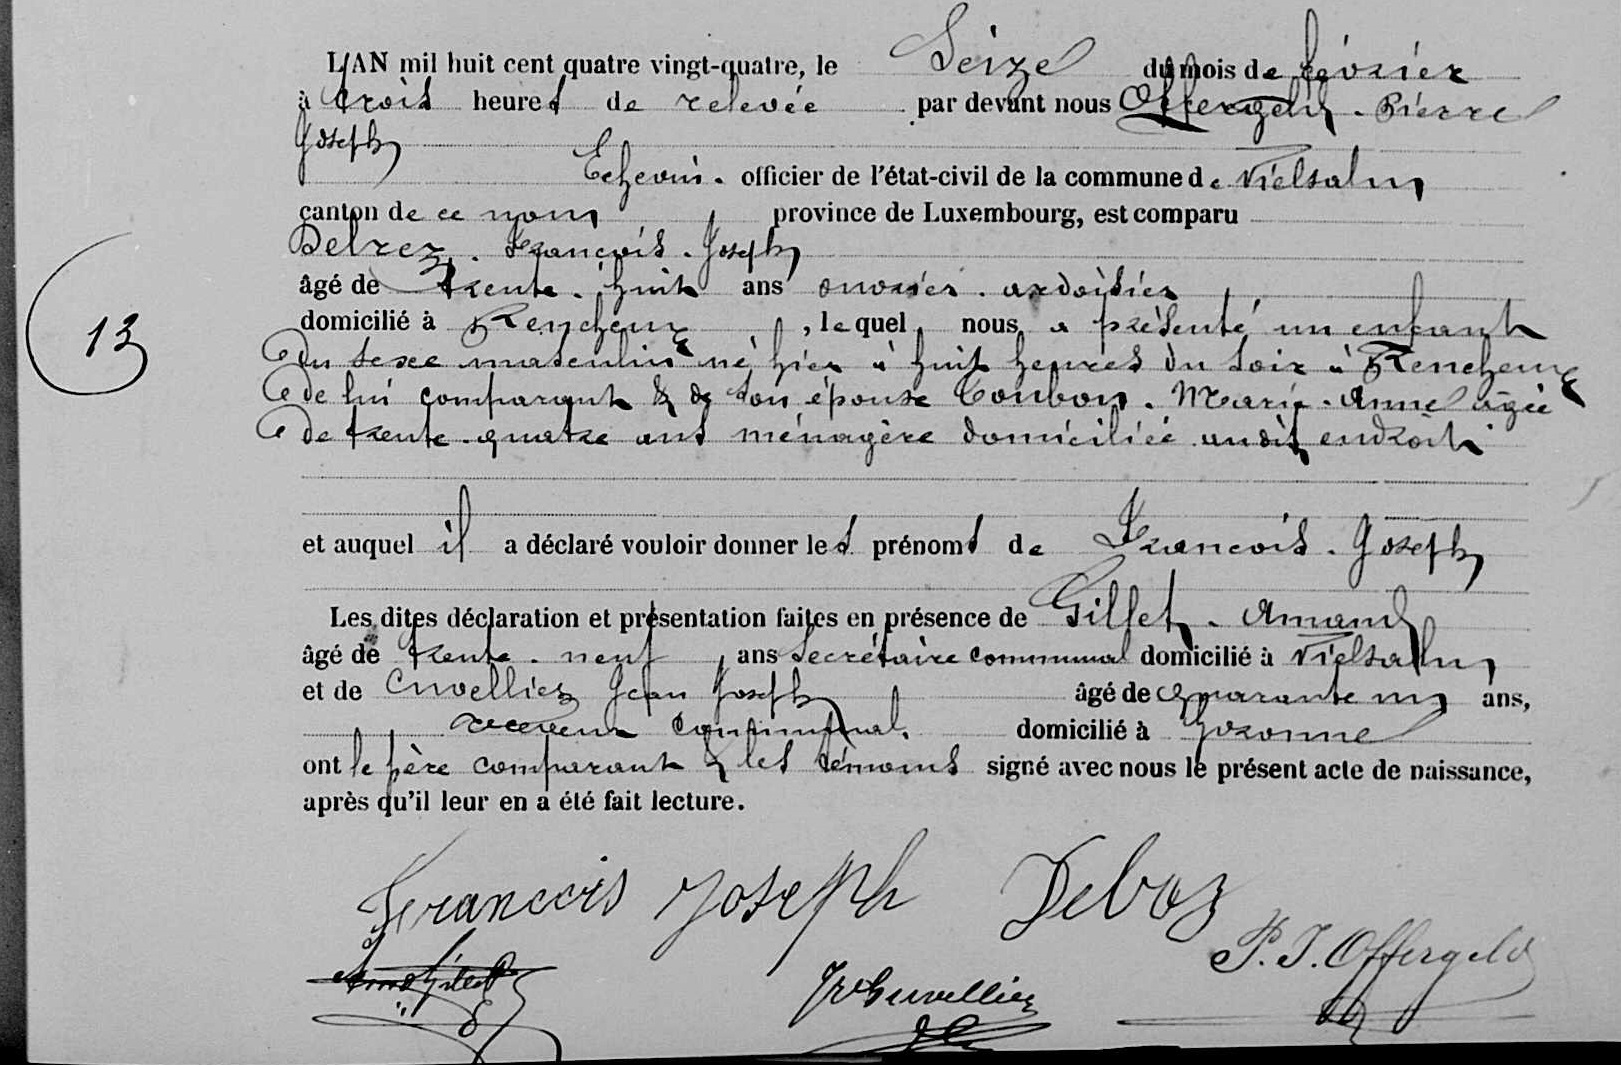 L'AN mil huit cent quatre vingt-quatre, le Seize du mois de février
à trois heures de relevée par devant nous Offergeld. Pierre
Joseph
Echevin. officier de l'état-civil de la commune de Vielsalm
canton de ce nom, province de Luxembourg, est comparu
Delrez. François. Joseph
âgé de trente. huit ans ouvrier. ardoisier
domicilié à Rencheux, lequel nous a présenté un enfant
Du sexe masculin né hier à huit heures du soir à Rencheux
De lui comparant & de son épouse Toubon. Marie. Anne âgée
De trente. quatre ans ménagère domiciliée audit endroit
13
et auquel il a déclaré vouloir donner les prénoms de François. Joseph
Les dites déclaration et présentation faites en présence de Gillet. Amand
âgé de trente. neuf, ans Secrétaire communal domicilié à Vielsalm
et de Cuvellier Jean Joseph âgé de quarante un ans,
receveur communal. domicilié à
ont le père comparant & les témoins signé avec nous le présent acte de naissance,
après qu'il leur en a été fait lecture.
François Joseph
P. J. Offergeld
Amd Gillet
Cuvellier